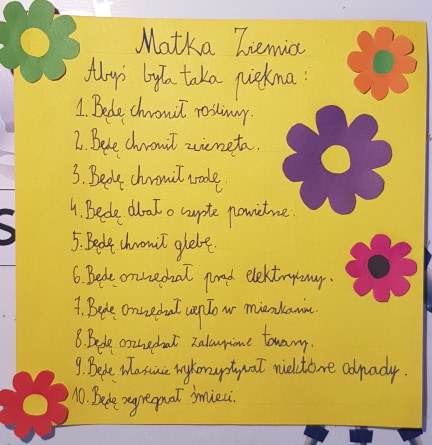 Matka Ziemia
Abyś była taka piękna:
1. Będę chronił rośliny.
2. Będę chronił zwierzęta.
3. Będę chronił wodę.
4. Będę dbał o czyste powietrze.
5. Będę chronił glebę.
6. Będę oszczędzał prąd elektryczny.
7. Będę oszczędzał ciepło w mieszkaniu.
8. Będę oszczędzał zakupione towary.
9. Będę właściwie wykorzystywał niektóre odpady.
10. Będę segregował śmieci.